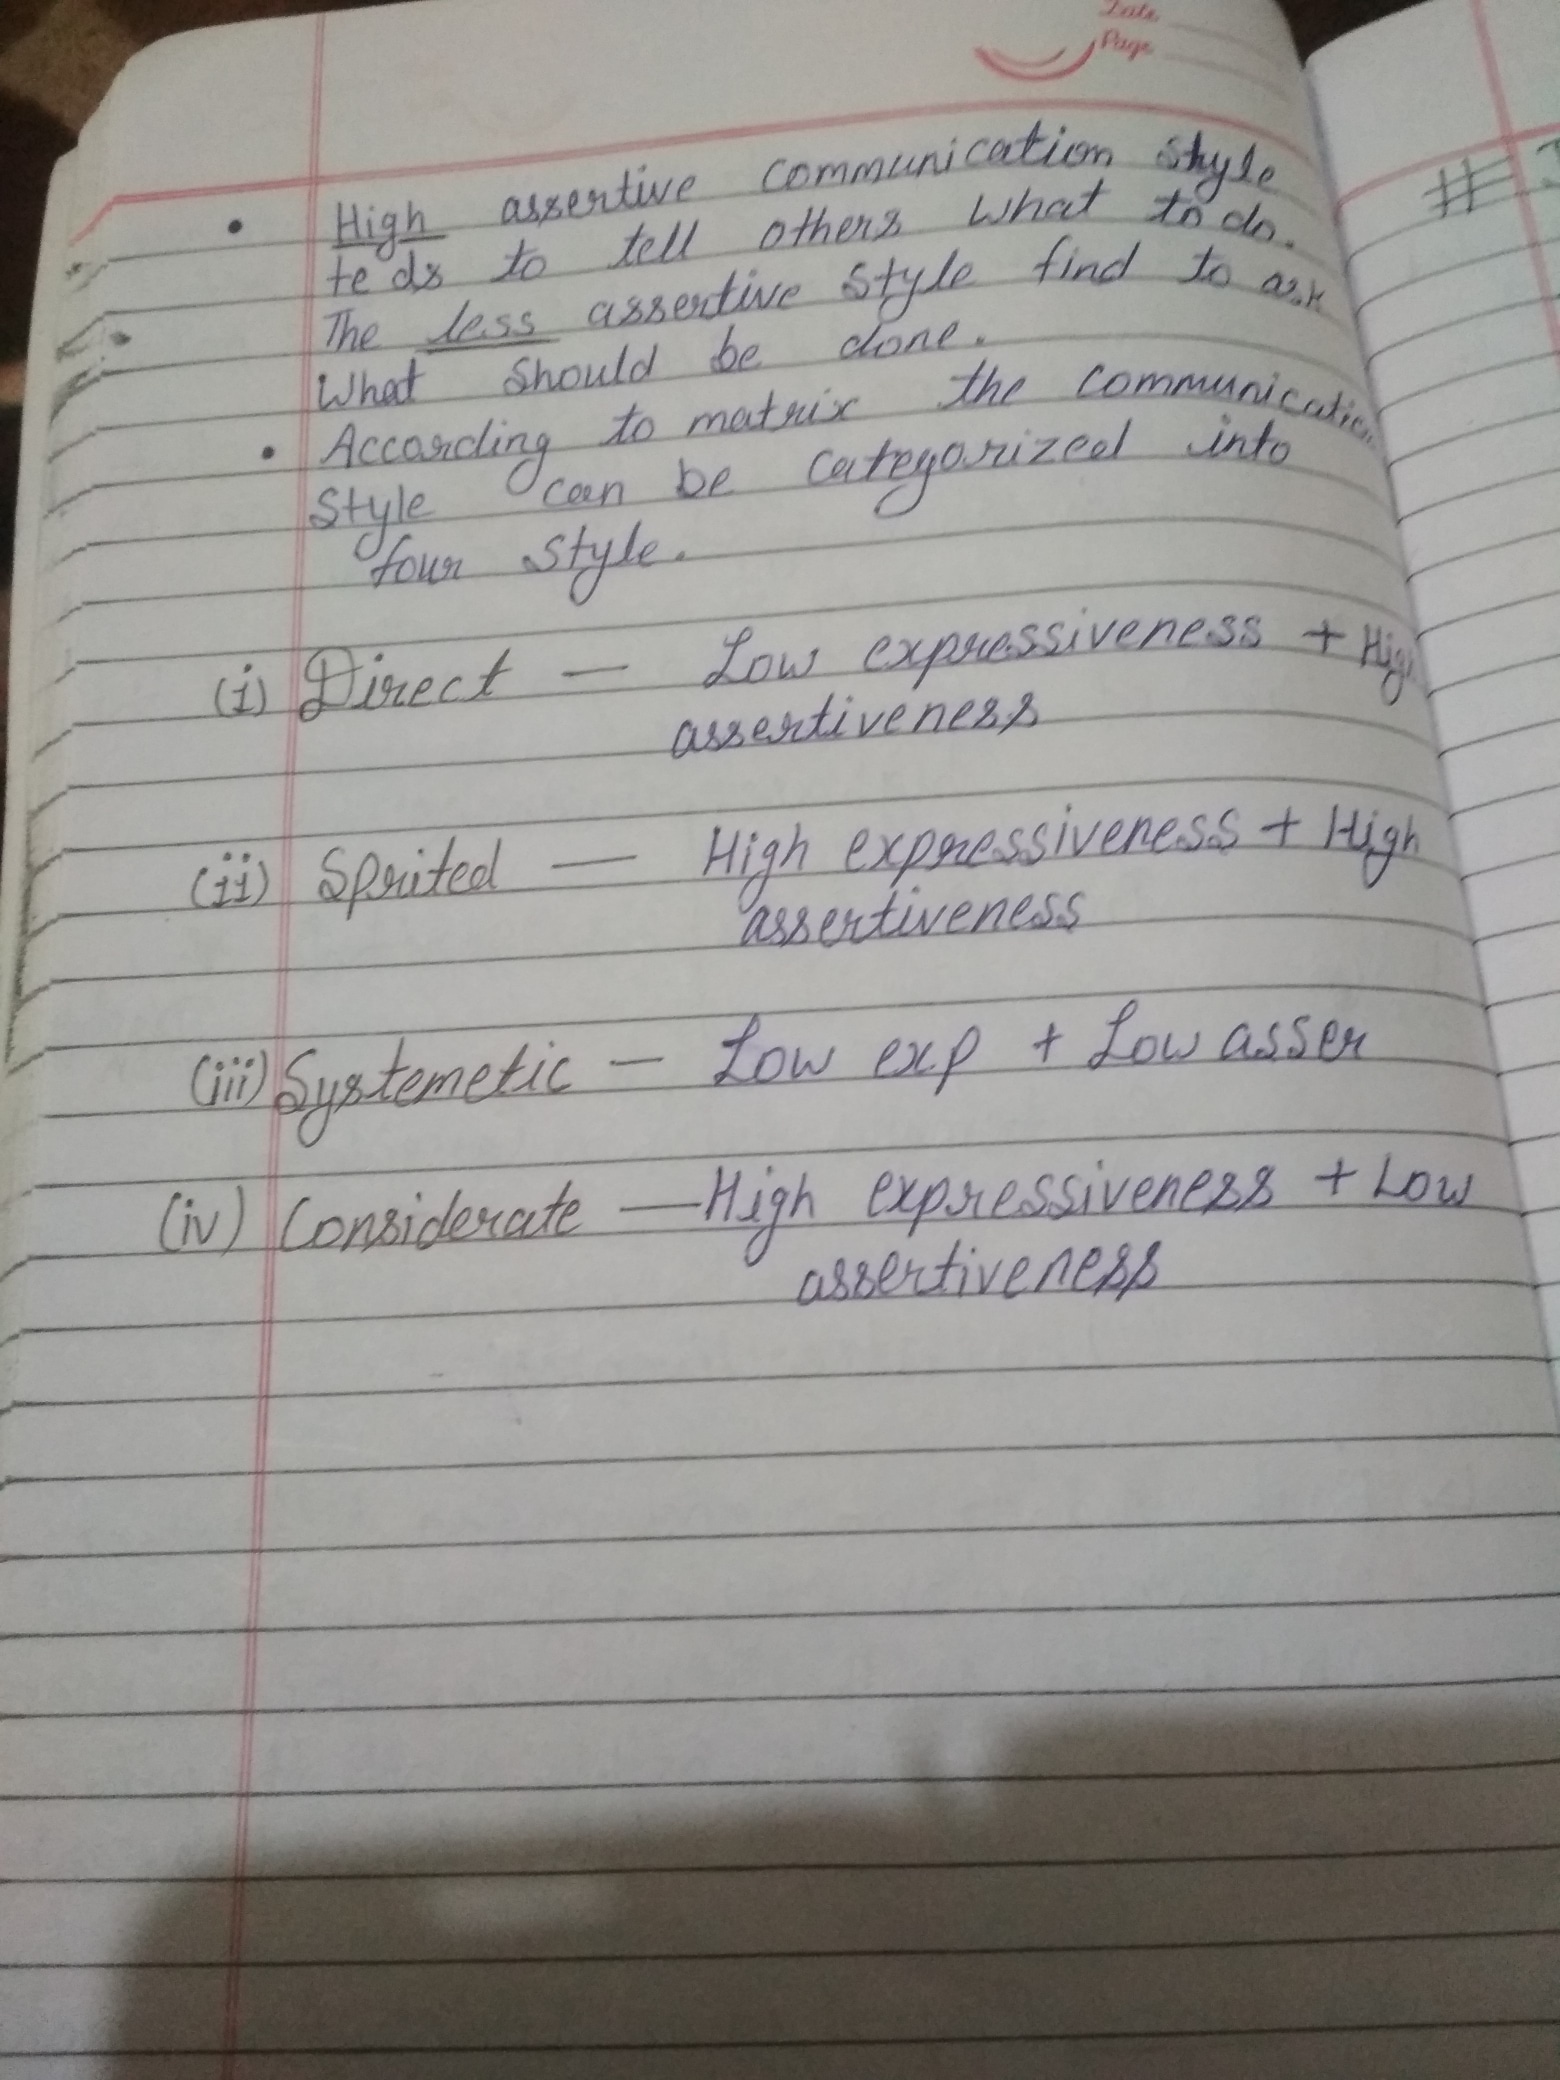 Date
Page
• High assertive communication style
te ds to tell others what to do.
The less assertive style find to ask
What should be done.
• According to matrix the communication
Style can be categorized into
four style.
(i) Direct — Low expressiveness + High
assertiveness
(ii) Sprited — High expressiveness + High
assertiveness
(iii) Systemetic — Low exp + Low asser
(iv) Considerate — High expressiveness + Low
assertiveness
#